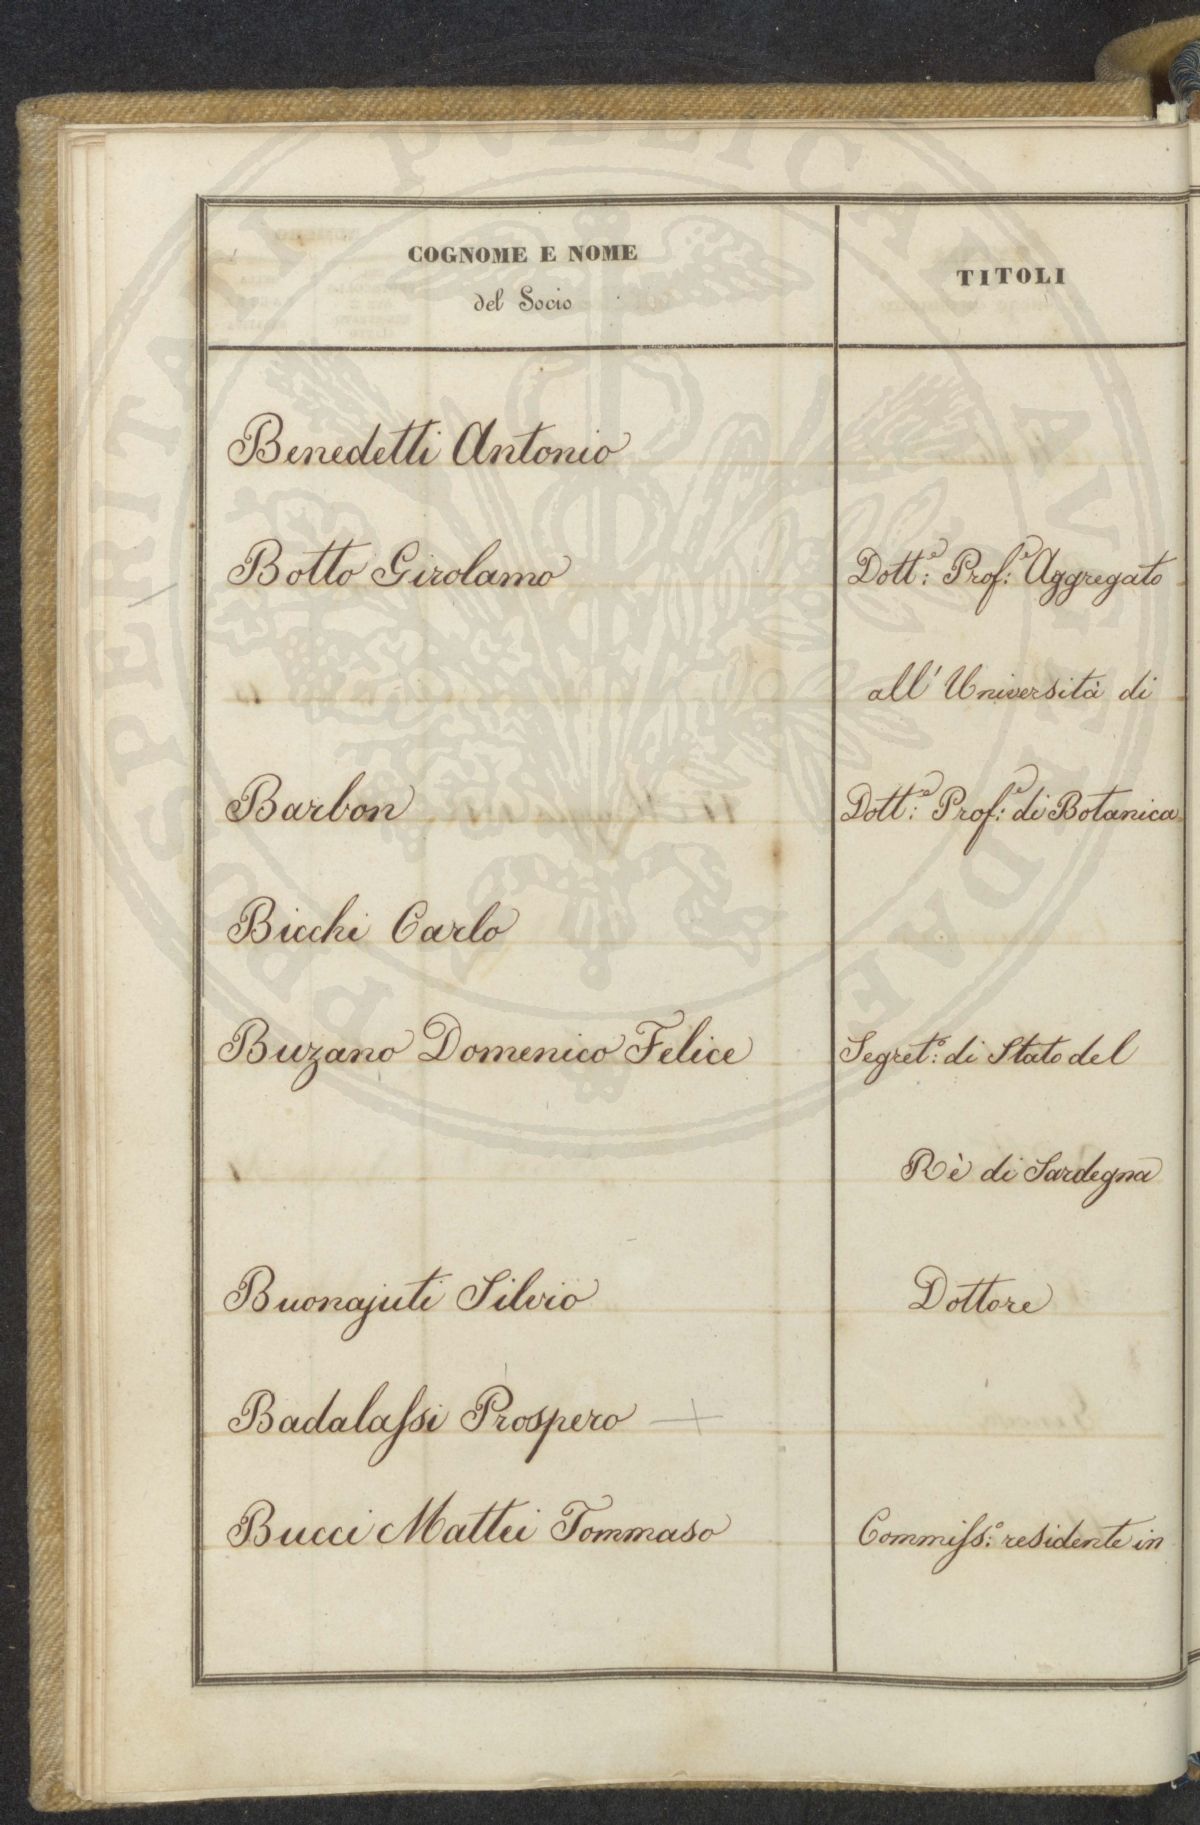 COGNOME E NOME
del Socio
TITOLI
Benedetti Antonio
Botto Girolamo
Dott:e Prof:e Aggregato
all' Università di
Barbon
Dott:e Prof:e di Botanica
Bicchi Carlo
Buzano Domenico Felice
Segret:o di Stato del
Rè di Sardegna
Buonajuti Silvio
Dottore
Badalaſsi Prospero
Bucci Mattei Tommaso
Commiſs:o residente in
PROSPERITATI PVBLICAE AVGENDAE